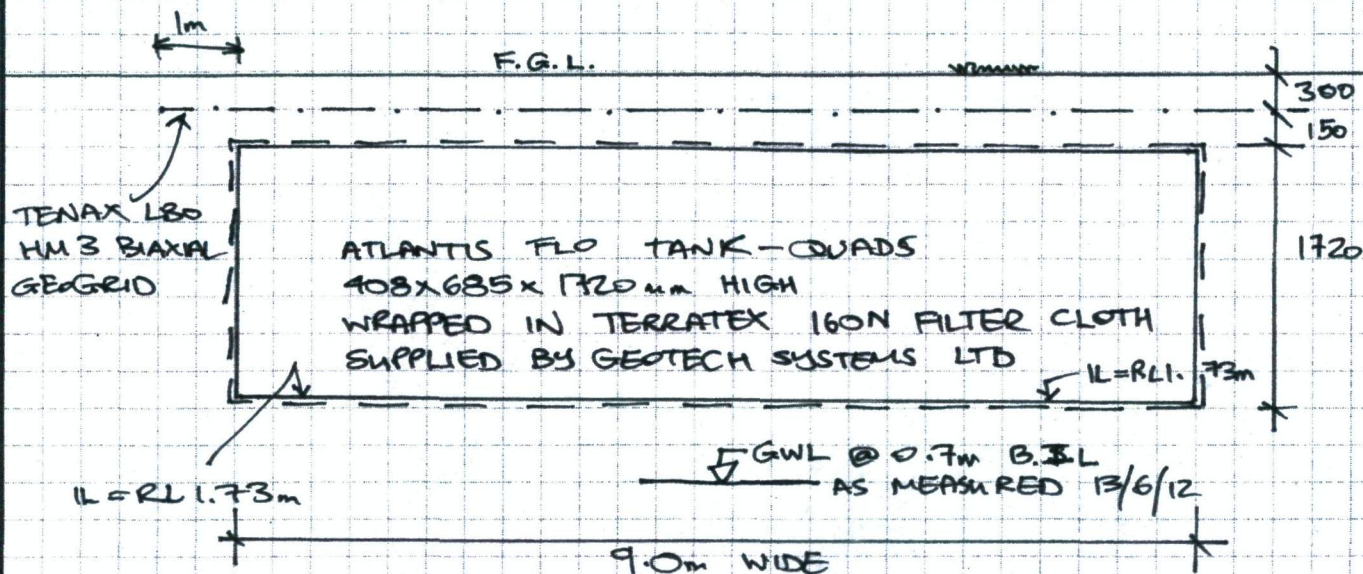 1m
F.G.L.
300
150
TENAX LBO
HM3 BIAXIAL
GEOGRID
ATLANTIS FLO TANK-QUADS
408x685x1720mm HIGH
WRAPPED IN TERRATEX 160N FILTER CLOTH
SUPPLIED BY GEOTECH SYSTEMS LTD
1720
IL=RL1.73m
IL=RL1.73m
GWL @ 0.7m
AS MEASURED 13/6/12
9.0m WIDE